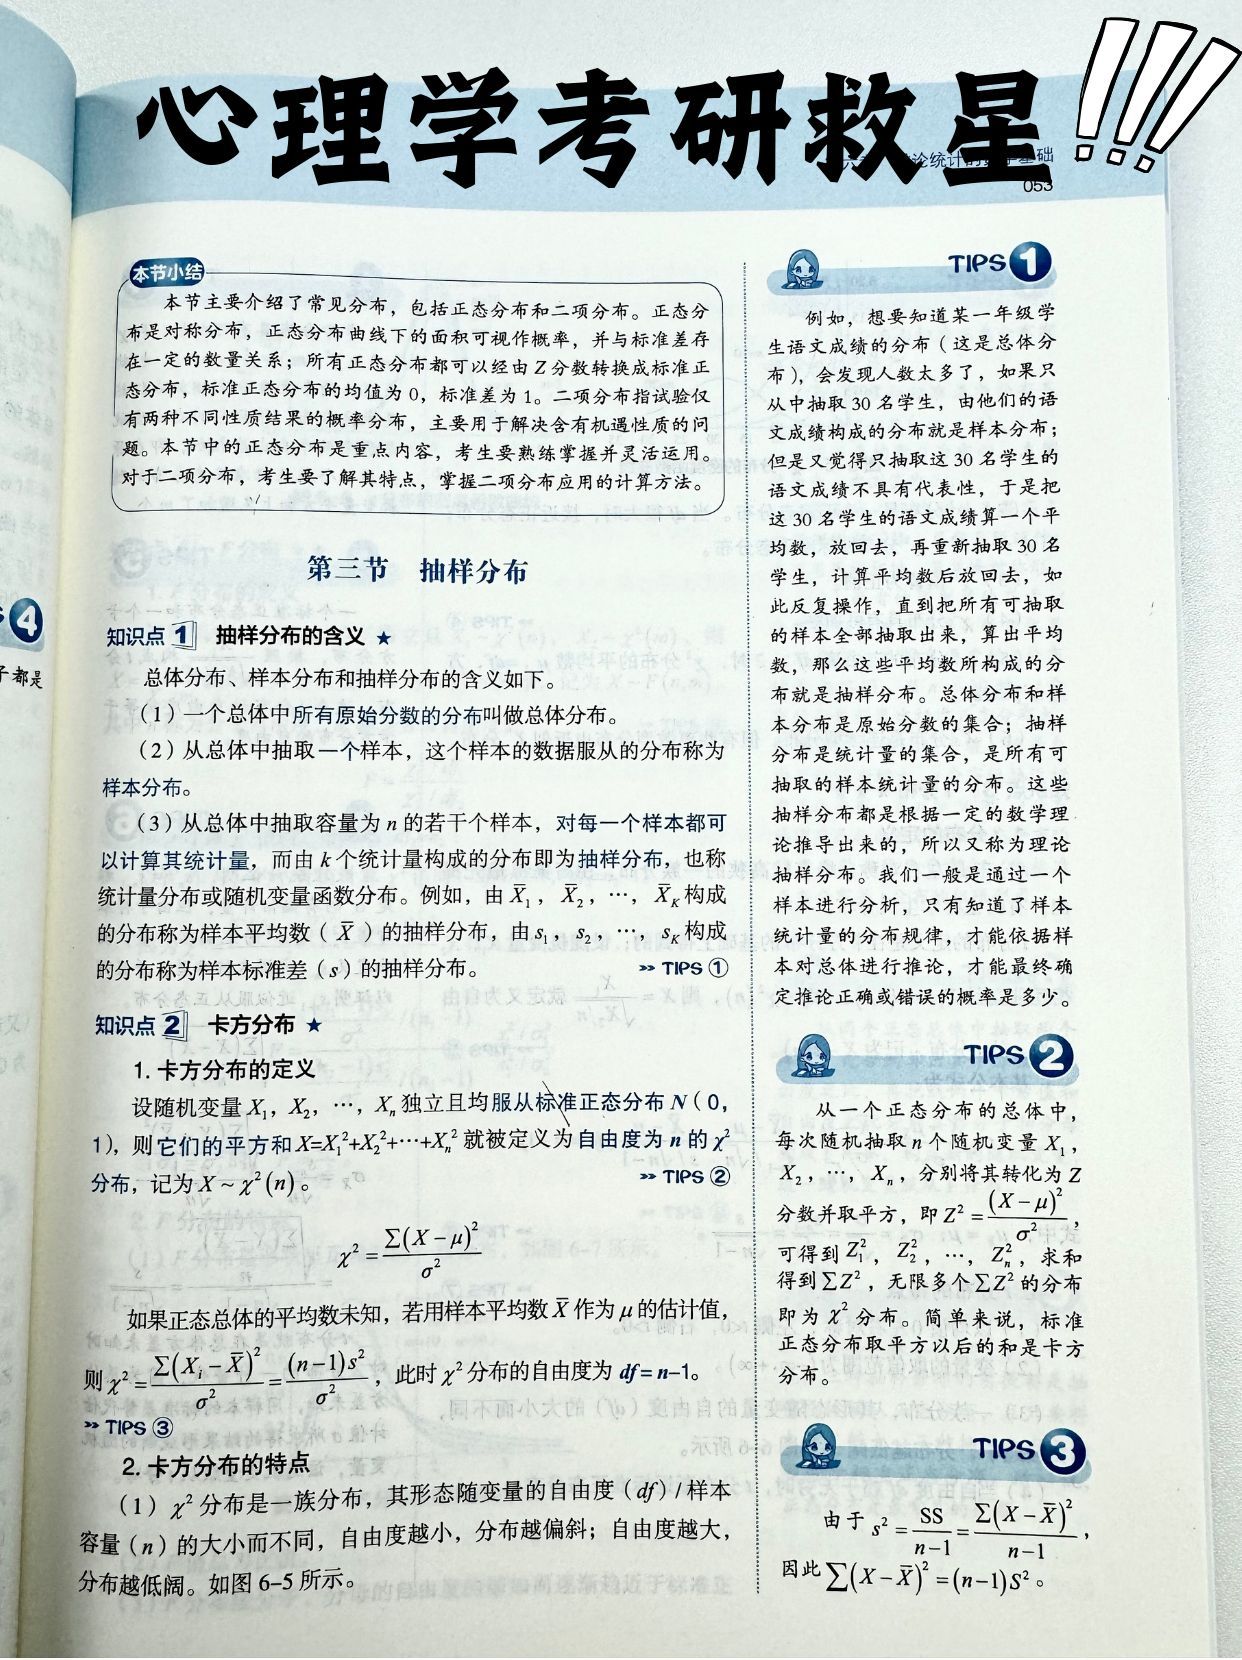 心理学考研救星!!!
论统计的数学基础
053
本节小结
本节主要介绍了常见分布，包括正态分布和二项分布。正态分
布是对称分布，正态分布曲线下的面积可视作概率，并与标准差存
在一定的数量关系；所有正态分布都可以经由Z分数转换成标准正
态分布，标准正态分布的均值为0，标准差为1。二项分布指试验仅
有两种不同性质结果的概率分布，主要用于解决含有机遇性质的问
题。本节中的正态分布是重点内容，考生要熟练掌握并灵活运用。
对于二项分布，考生要了解其特点，掌握二项分布应用的计算方法。
第三节 抽样分布
知识点 1 抽样分布的含义 ★
总体分布、样本分布和抽样分布的含义如下。
（1）一个总体中所有原始分数的分布叫做总体分布。
（2）从总体中抽取一个样本，这个样本的数据服从的分布称为
样本分布。
（3）从总体中抽取容量为 n 的若干个样本，对每一个样本都可
以计算其统计量，而由 k 个统计量构成的分布即为抽样分布，也称
统计量分布或随机变量函数分布。例如，由 X̄₁，X̄₂，…，X̄_K 构成
的分布称为样本平均数（X̄）的抽样分布，由 s₁，s₂，…，s_K 构成
的分布称为样本标准差（s）的抽样分布。 >> TIPS ①
知识点 2 卡方分布 ★
1. 卡方分布的定义
设随机变量 X₁，X₂，…，Xₙ 独立且均服从标准正态分布 N（0，
1），则它们的平方和 X=X₁²+X₂²+…+Xₙ² 就被定义为自由度为 n 的 χ²
分布，记为 X ~ χ²(n)。 >> TIPS ②
χ² = Σ(X−μ)²/σ²
如果正态总体的平均数未知，若用样本平均数 X̄ 作为 μ 的估计值，
则 χ² = Σ(Xᵢ−X̄)²/σ² = (n−1)s²/σ²，此时 χ² 分布的自由度为 df = n–1。
>> TIPS ③
2. 卡方分布的特点
（1）χ² 分布是一族分布，其形态随变量的自由度（df）/ 样本
容量（n）的大小而不同，自由度越小，分布越偏斜；自由度越大，
分布越低阔。如图 6–5 所示。
TIPS 1
例如，想要知道某一年级学
生语文成绩的分布（这是总体分
布），会发现人数太多了，如果只
从中抽取 30 名学生，由他们的语
文成绩构成的分布就是样本分布；
但是又觉得只抽取这 30 名学生的
语文成绩不具有代表性，于是把
这 30 名学生的语文成绩算一个平
均数，放回去，再重新抽取 30 名
学生，计算平均数后放回去，如
此反复操作，直到把所有可抽取
的样本全部抽取出来，算出平均
数，那么这些平均数所构成的分
布就是抽样分布。总体分布和样
本分布是原始分数的集合；抽样
分布是统计量的集合，是所有可
抽取的样本统计量的分布。这些
抽样分布都是根据一定的数学理
论推导出来的，所以又称为理论
抽样分布。我们一般是通过一个
样本进行分析，只有知道了样本
统计量的分布规律，才能依据样
本对总体进行推论，才能最终确
定推论正确或错误的概率是多少。
TIPS 2
从一个正态分布的总体中，
每次随机抽取 n 个随机变量 X₁，
X₂，…，Xₙ，分别将其转化为 Z
分数并取平方，即 Z² = (X−μ)²/σ²，
可得到 Z₁²，Z₂²，…，Zₙ²，求和
得到ΣZ²，无限多个ΣZ² 的分布
即为 χ² 分布。简单来说，标准
正态分布取平方以后的和是卡方
分布。
TIPS 3
由于 s² = SS/(n−1) = Σ(X−X̄)²/(n−1)，
因此 Σ(X−X̄)² = (n−1)S²。
4
子都是